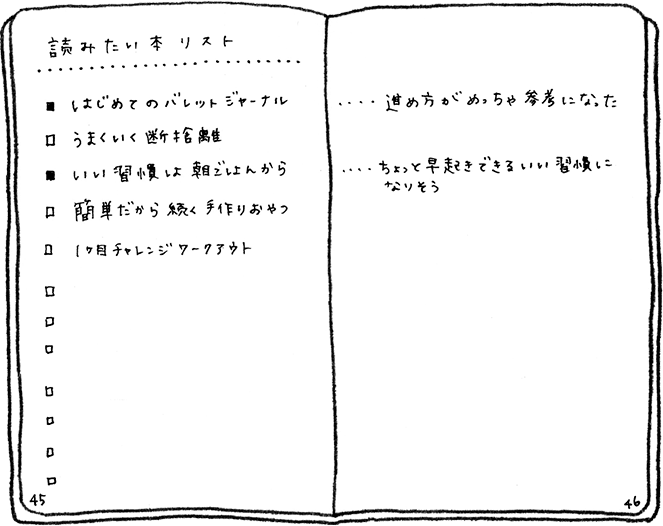 読みたい本リスト
はじめてのバレットジャーナル
うまくいく断捨離
いい習慣は朝ごはんから
簡単だから続く手作りおやつ
1ヶ月チャレンジワークアウト
45
‥‥進め方がめっちゃ参考になった
‥‥ちょっと早起きできるいい習慣に
なりそう
46